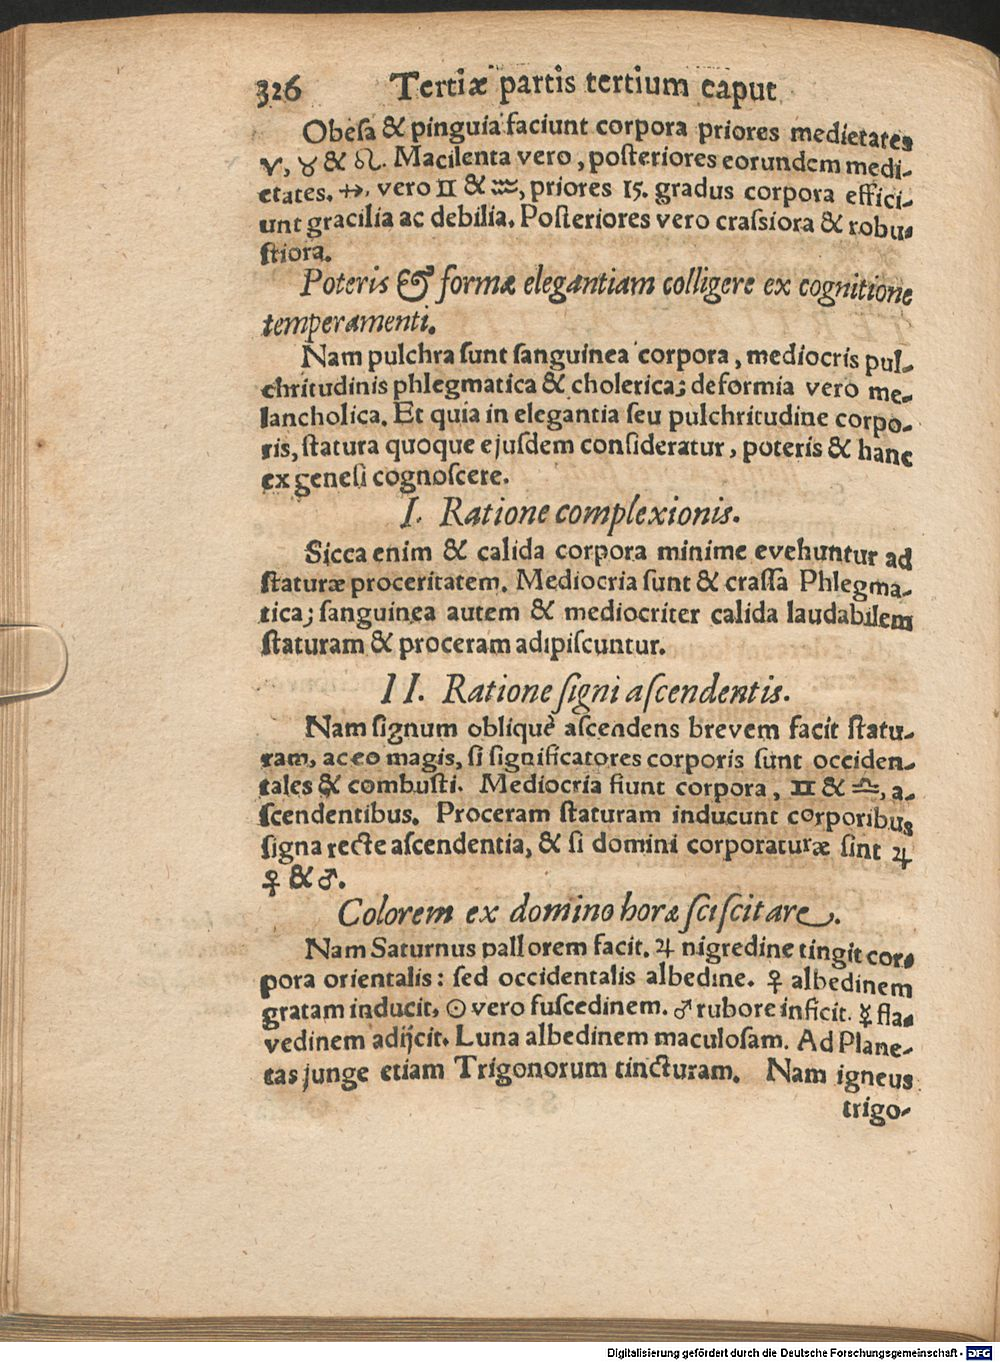 326 Tertiæ partis tertium caput
Obeſa & pinguia faciunt corpora priores medietates
♈, ♉ & ♌. Macilenta vero, poſteriores eorundem medi-
etates. ♐, vero ♊ & ♒, priores 15. gradus corpora effici-
unt gracilia ac debilia. Poſteriores vero craſsiora & robu-
ſtiora.
Poteris & formæ elegantiam colligere ex cognitione
temperamenti.
Nam pulchra ſunt ſanguinea corpora, mediocris pul-
chritudinis phlegmatica & cholerica; deformia vero me-
lancholica. Et quia in elegantia ſeu pulchritudine corpo-
ris, ſtatura quoque ejuſdem conſideratur, poteris & hanc
ex geneſi cognoſcere.
I. Ratione complexionis.
Sicca enim & calida corpora minime evehuntur ad
ſtaturæ proceritatem. Mediocria ſunt & craſſa Phlegma-
tica; ſanguinea autem & mediocriter calida laudabilem
ſtaturam & proceram adipiſcuntur.
II. Ratione ſigni aſcendentis.
Nam ſignum obliquè aſcendens brevem facit ſtatu-
ram, ac eo magis, ſi ſignificatores corporis ſunt occiden-
tales & combuſti. Mediocria fiunt corpora, ♊ & ♎, a-
ſcendentibus. Proceram ſtaturam inducunt corporibus
ſigna recte aſcendentia, & ſi domini corporaturæ ſint ♃
♀ & ♂.
Colorem ex domino horæ ſciſcitare.
Nam Saturnus pallorem facit. ♃ nigredine tingit cor-
pora orientalis: ſed occidentalis albedine. ♀ albedinem
gratam inducit, ☉ vero fuſcedinem. ♂ rubore inficit. ☿ fla-
vedinem adijcit. Luna albedinem maculoſam. Ad Plane-
tas junge etiam Trigonorum tincturam. Nam igneus
trigo-
Digitalisierung gefördert durch die Deutsche Forschungsgemeinschaft - DFG